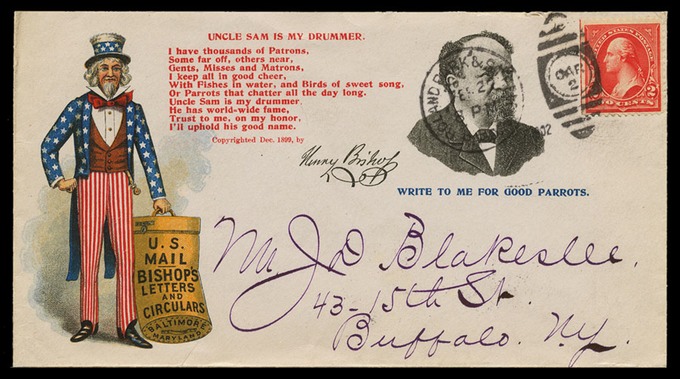 UNCLE SAM IS MY DRUMMER.
I have thousands of Patrons,
Some far off, others near,
Gents, Misses and Matrons,
I keep all in good cheer,
With Fishes in water, and Birds of sweet song,
Or Parrots that chatter all the day long.
Uncle Sam is my drummer.
He has world-wide fame,
Trust to me, on my honor,
I'll uphold his good name.
Copyrighted Dec. 1899, by
Henry Bishop
WRITE TO ME FOR GOOD PARROTS.
UNITED STATES POSTAGE
2 2
TWO CENTS
U.S.
MAIL
BISHOP'S
LETTERS
AND
CIRCULARS
BALTIMORE
MARYLAND
Mr J D Blakeslee.
43-15th St.
Buffalo. N.Y.